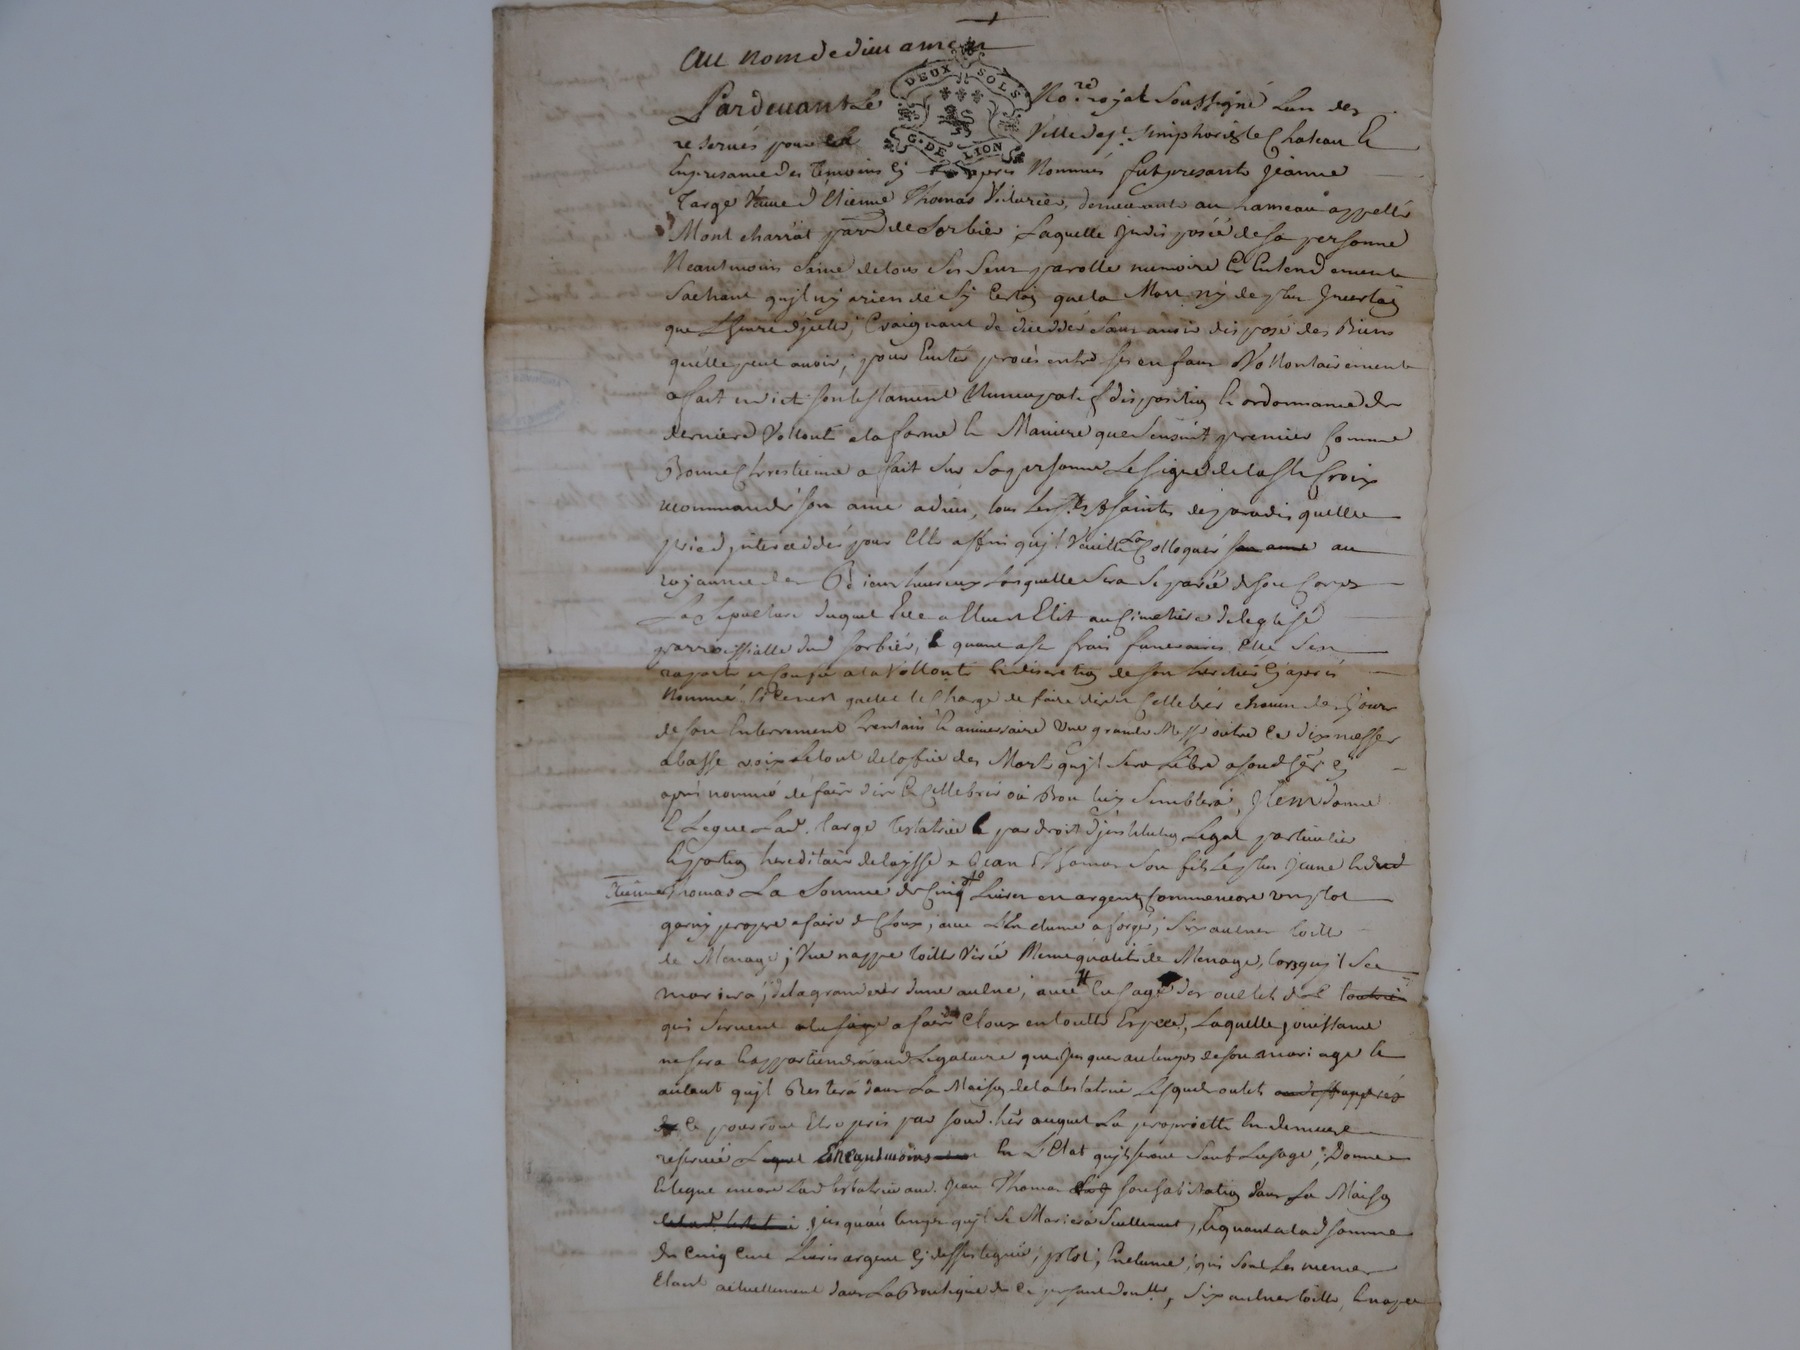 Au nom de dieu amen
DEUX SOLS
G. DE LION
Pardevant Le No.re royal Soussigné Lun des
reservés pour la Ville de st. Simphorix le Chateau Et
En presance des Temoins Cy apres Nommés fut presante Jeanne
Targe Veuve d'Etienne Thomas Voiturier, demeurante au hameau appellé
Mont charrat par.d de Sorbier, Laquelle Indisposée de sa personne
Neantmoins Saine de tous Ses Sens parolle memoire Et Entendement
Sachant qu'il ny a rien de Sy Certain que la Mort ny de plus Incertain
que L'heure d'jcelle, Craignant de decedder Sans avoir disposé des Biens
qu'elle peut avoir, pour Eviter procès entre ses enfans Vollontairement
a fait son testament Nuncupatif disposition Et ordonnance de
derniere Vollonté a la forme Et Maniere que S'ensuit premier Comme
Bonne Chrestienne a fait Sur Sa personne Le Signe de la Ste Croix
recommandé Son ame a dieu, tous Les Sts & Saintes de paradis quelle
prie d'jnterceder pour Elle affin qu'jl Veuille La Colloquer son ame au
royaume des Bienheureux Lorsquelle Sera Separée de Son Corps
La Sepulture duquel Elle a Elit au Cimetiere de leglise
parroissialle dud Sorbier, Et quant a Ses frais funeraires Elle Sen
raporte et Confie a la Vollonté Et discretion de Son heritier Cy apres
Nommé, Si Ce nest quelle Le Charge de faire dire Et Cellebrer chacun des jours
de Son Enterrement trentain Et aniversaire Une grande Messe outre Ce dix messes
a basse voix Le tout de loffice des Morts qujl Sera Libre a Sond her Cy
apres nommé de faire dire Et Cellebrer où Bon luy Semblera, Item donne
Et Legue Lad. targe testatrice par droit d'jnstitution Legat particulier
Et portion hereditaire delaysse a Jean Thomas Son fils Le plus jeune Et dud
Etienne Thomas La Somme de Cinq Livres en argent Comme encore un plot
garny propre a faire de Cloux, avec L'Enclume a forger, Six aulnes toille
de Menage, Une nappe toille Même qualité de Menage, lorsqu'il Se
mariera, de la grandeur d'une aulne, avec L'usage des outtils
qui Servent a faire Cloux en toutte Espece, Laquelle jouissance
ne Sera Et appartiendra aud Legataire que jusques au temps de Son mariage Et
autant qujl Restera dans La Maison de la testatrice Lesquels outils
Ce pourront Etre pris par Sond. her auquel La proprietté En demeure
reservée Et neantmoins En L'Etat qu'ils seront Sauf L'usage, Donne
Et legue encore Lad testatrice aud. Jean Thomas Son habitation dans La Maison
jusquau temps qujl Se Mariera Seullement, Et quant a lad Somme
de Cinq Cent Livres argent Cy dessus leguée, plot, Enclume, qui Sont Les memes
Etant actuellement dans La Boutique, Six aulnes toille, Et nappe